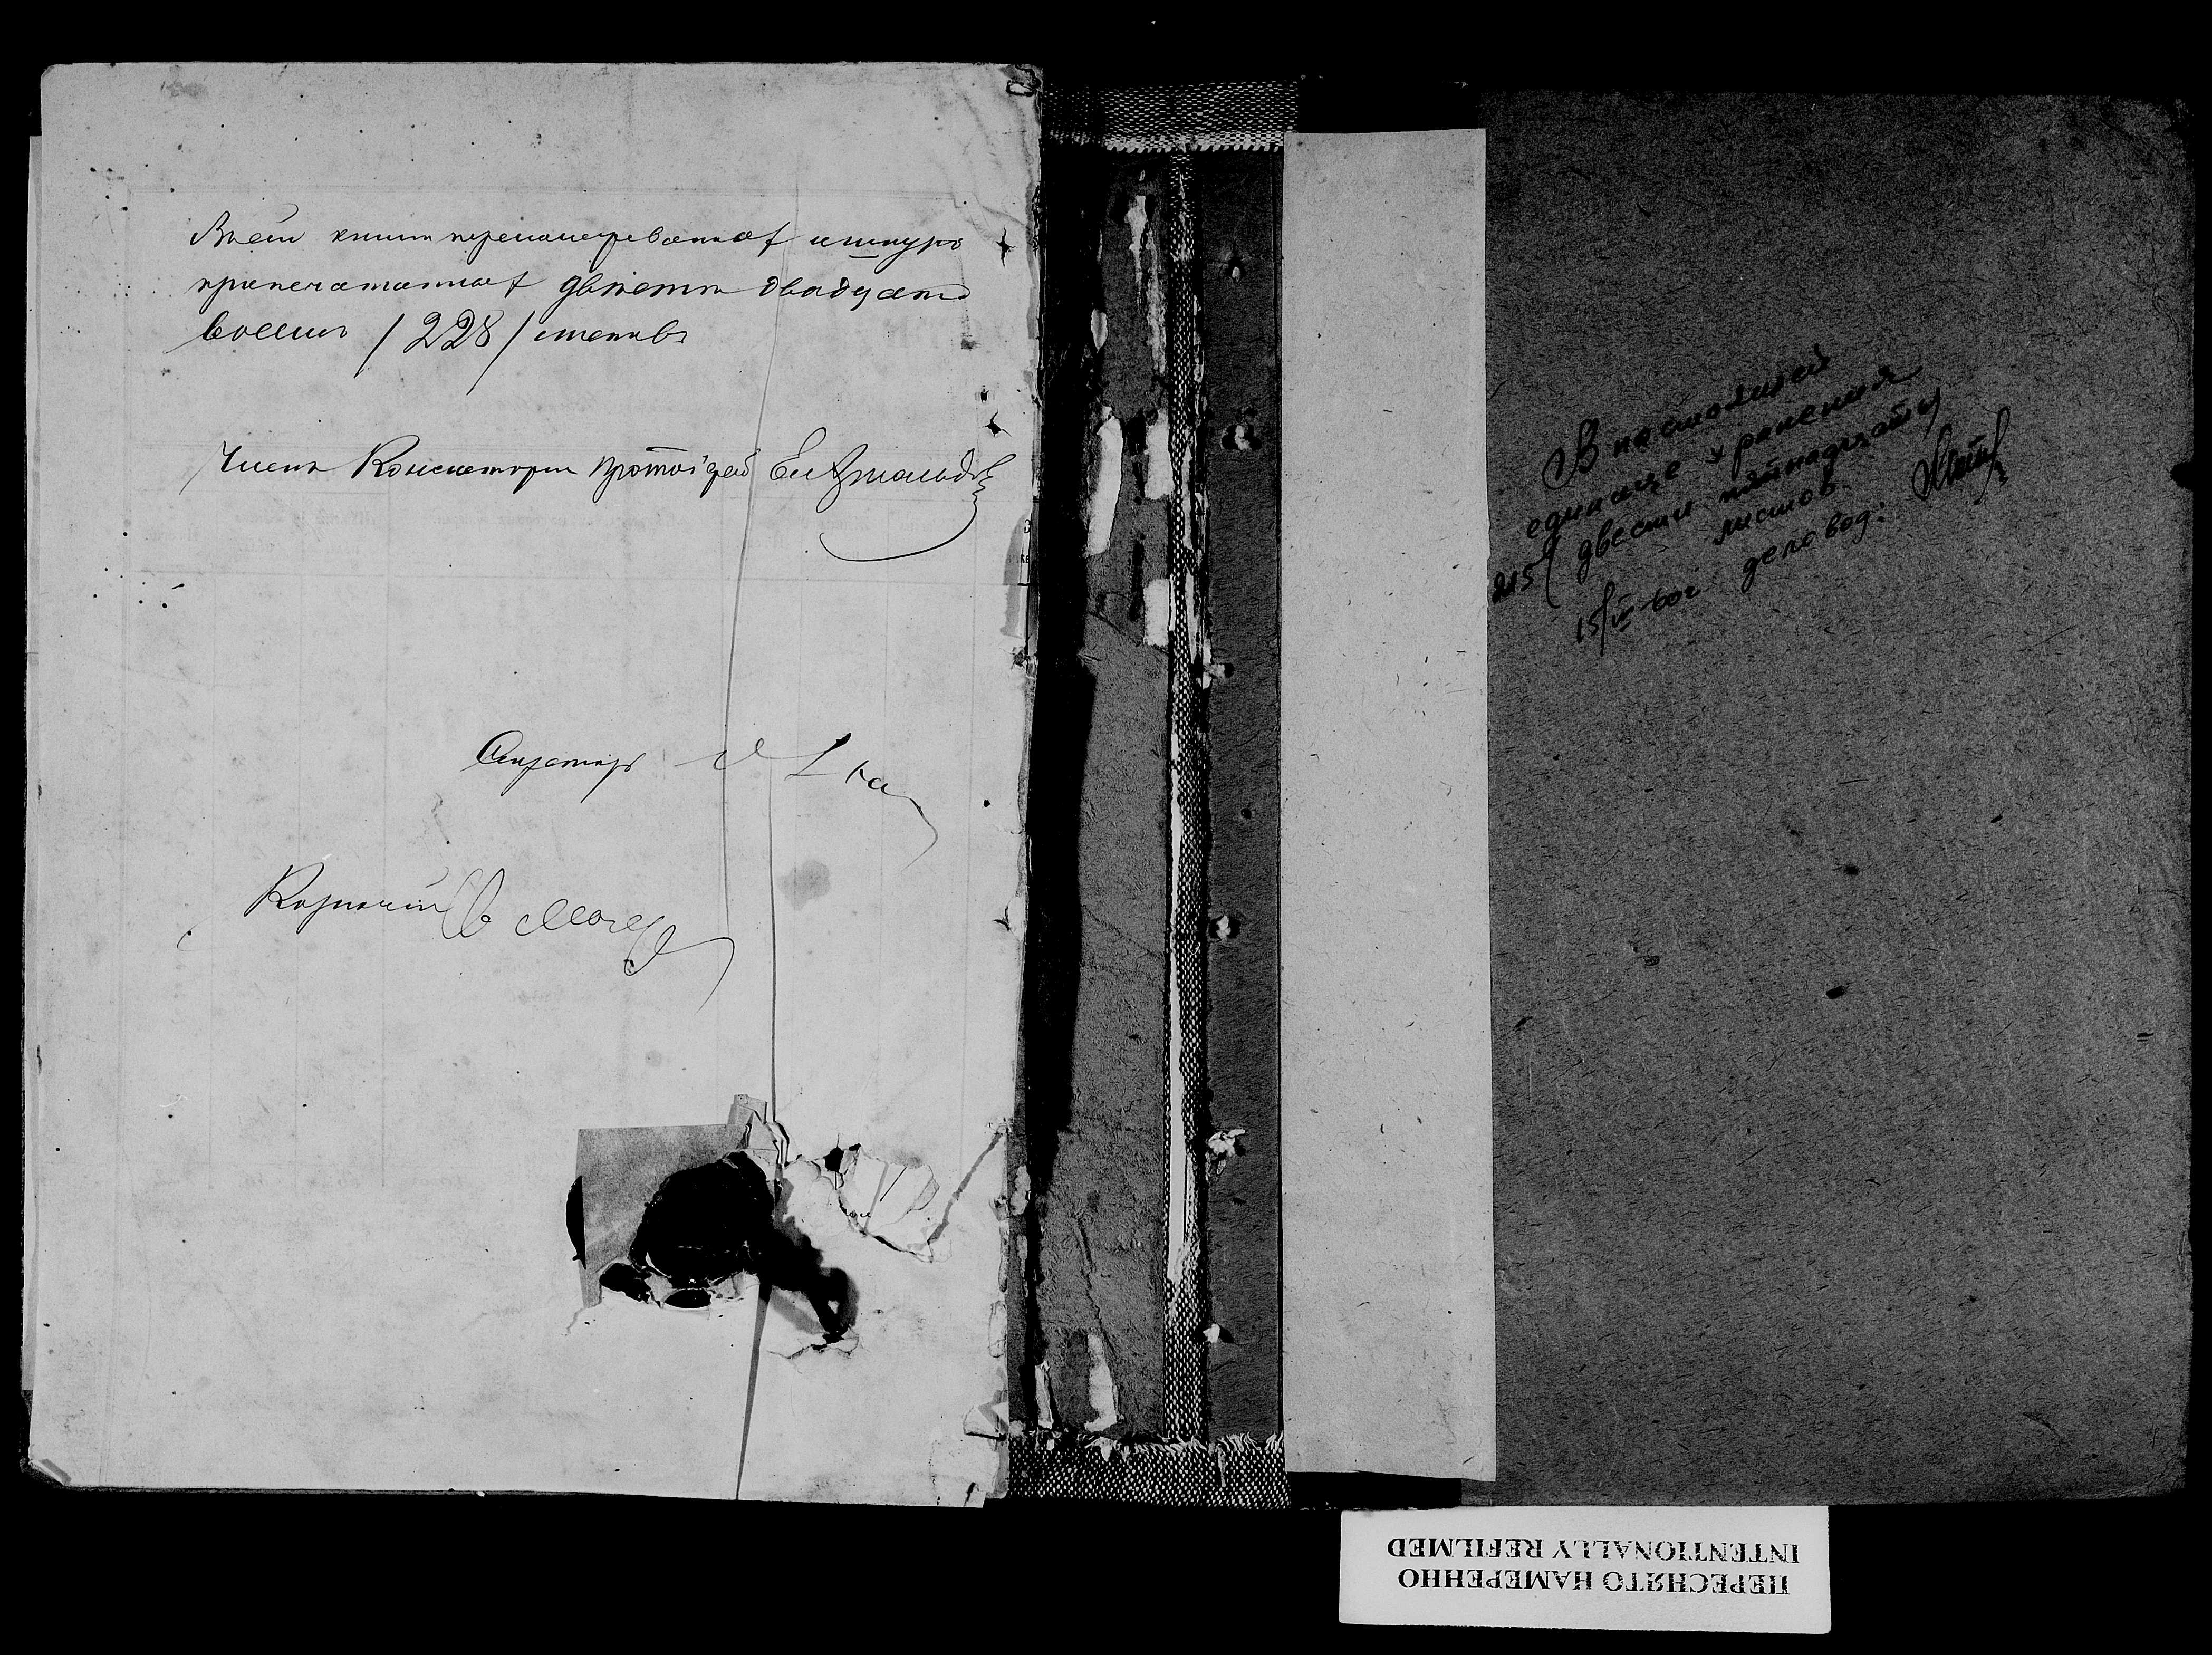 Всей книги перенумерованных и шнуро
припечатанных двѣсти двадцать
восемь /228/ листовъ
Членъ Консисторiи Протоiерей
Секретарь
Казначей
В настоящей
единице хранения
215 (двести пятнадцать)
листов.
15/IV деловод:
ПЕРЕСНЯТО НАМЕРЕННО
INTENTIONALLY REFILMED